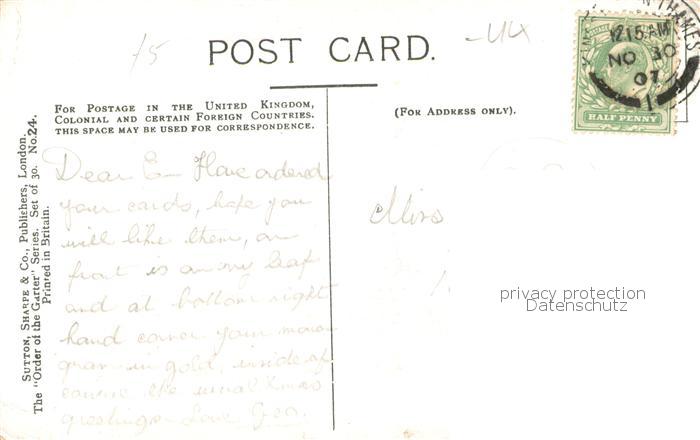 /5
-UX
POST CARD.
FOR POSTAGE IN THE UNITED KINGDOM,
COLONIAL AND CERTAIN FOREIGN COUNTRIES.
THIS SPACE MAY BE USED FOR CORRESPONDENCE.
(FOR ADDRESS ONLY).
THAMES
12 15 AM
NO 30
07
1
HALF PENNY
Dear E— Have ordered
your cards, hope you
will like them, on
front is an ivy leaf
and at bottom right
hand corner your mono
gram in gold, inside of
course the usual Xmas
greetings— Love Geo.
Miss
privacy protection
Datenschutz
SUTTON, SHARPE & CO., Publishers, London.
The "Order of the Garter" Series. Set of 30. No. 24.
Printed in Britain.